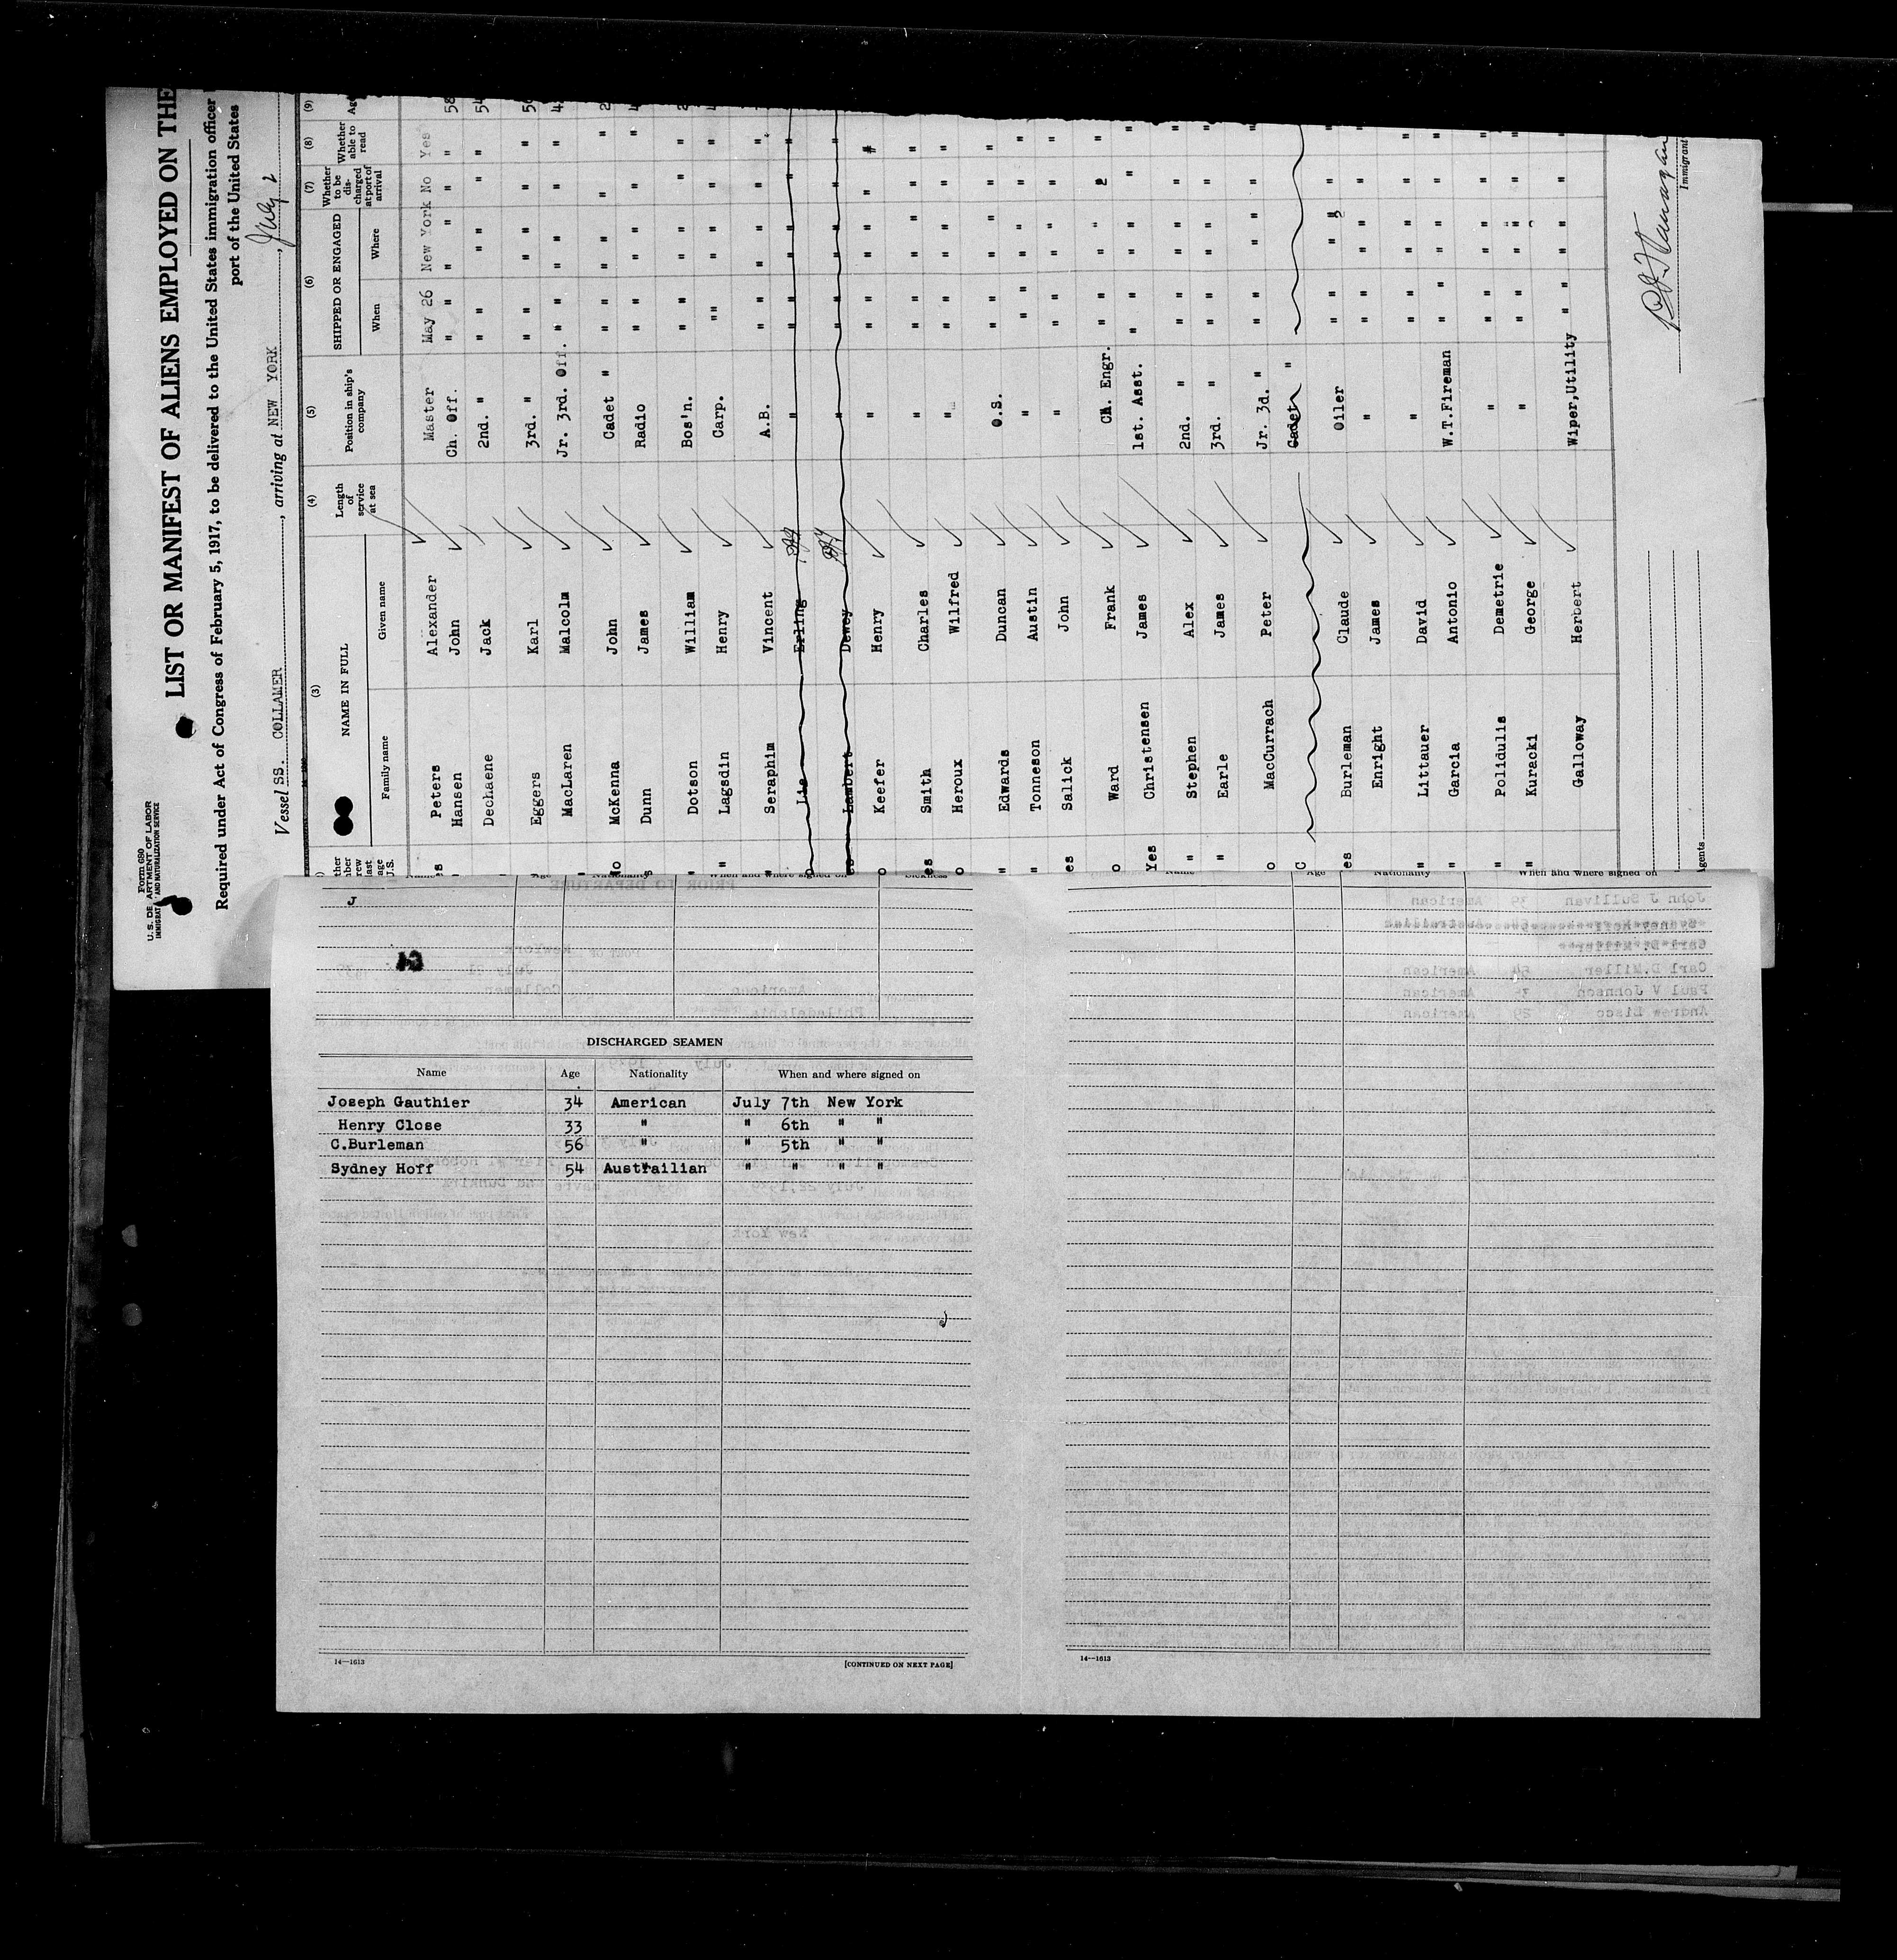 Form 680
U. S. DEPARTMENT OF LABOR
IMMIGRATION AND NATURALIZATION SERVICE
LIST OR MANIFEST OF ALIENS EMPLOYED ON THE
Required under Act of Congress of February 5, 1917, to be delivered to the United States immigration officer
port of the United States
Vessel SS. COLLAMER, arriving at NEW YORK, July 2
(3) (4) (5) (6) (7) (8) (9)
NAME IN FULL Length of service at sea Position in ship's company SHIPPED OR ENGAGED Whether to be discharged at port of arrival Whether able to read Age
Family name Given name When Where
Peters Alexander Master May 26 New York No Yes 58
Hansen John Ch. Off. " " " " " " 54
Dechaene Jack 2nd. " " " " " " "
Eggers Karl 3rd. " " " " " " "
MacLaren Malcolm Jr. 3rd. Off. " " " " " "
McKenna John Cadet " " " " " " "
Dunn James Radio " " " " " "
Dotson William Bos'n. " " " " " "
Lagsdin Henry Carp. " " " " " "
Seraphim Vincent A.B. " " " " " "
Lie Erling " " " " " " "
Lambert Dewey " " " " " " "
Keefer Henry " " " " " " "
Smith Charles " " " " " " "
Heroux Wilfred " " " " " " "
Edwards Duncan O.S. " " " " " "
Tonneson Austin " " " " " " "
Salick John " " " " " " "
Ward Frank Ch. Engr. " " " " " "
Christensen James 1st. Asst. " " " " "
Stephen Alex 2nd. " " " " " " "
Earle James 3rd. " " " " " " "
MacCurrach Peter Jr. 3d. " " " " " " "
Cadet "
Burleman Claude Oiler " " " " " "
Enright James " " " " " " "
Littauer David " " " " " " "
Garcia Antonio W.T.Fireman " " " " " "
Polidulis Demetrie " " " " " " "
Kuracki George " " " " " " "
Galloway Herbert Wiper,Utility " " " " " "
Immigrant
Agents
J
DISCHARGED SEAMEN
Name Age Nationality When and where signed on
Joseph Gauthier 34 American July 7th New York
Henry Close 33 " " 6th " "
C.Burleman 56 " " 5th " "
Sydney Hoff 54 Austrailian " " " "
14—1613
[CONTINUED ON NEXT PAGE]
Name Age Nationality When and where signed on
14—1613